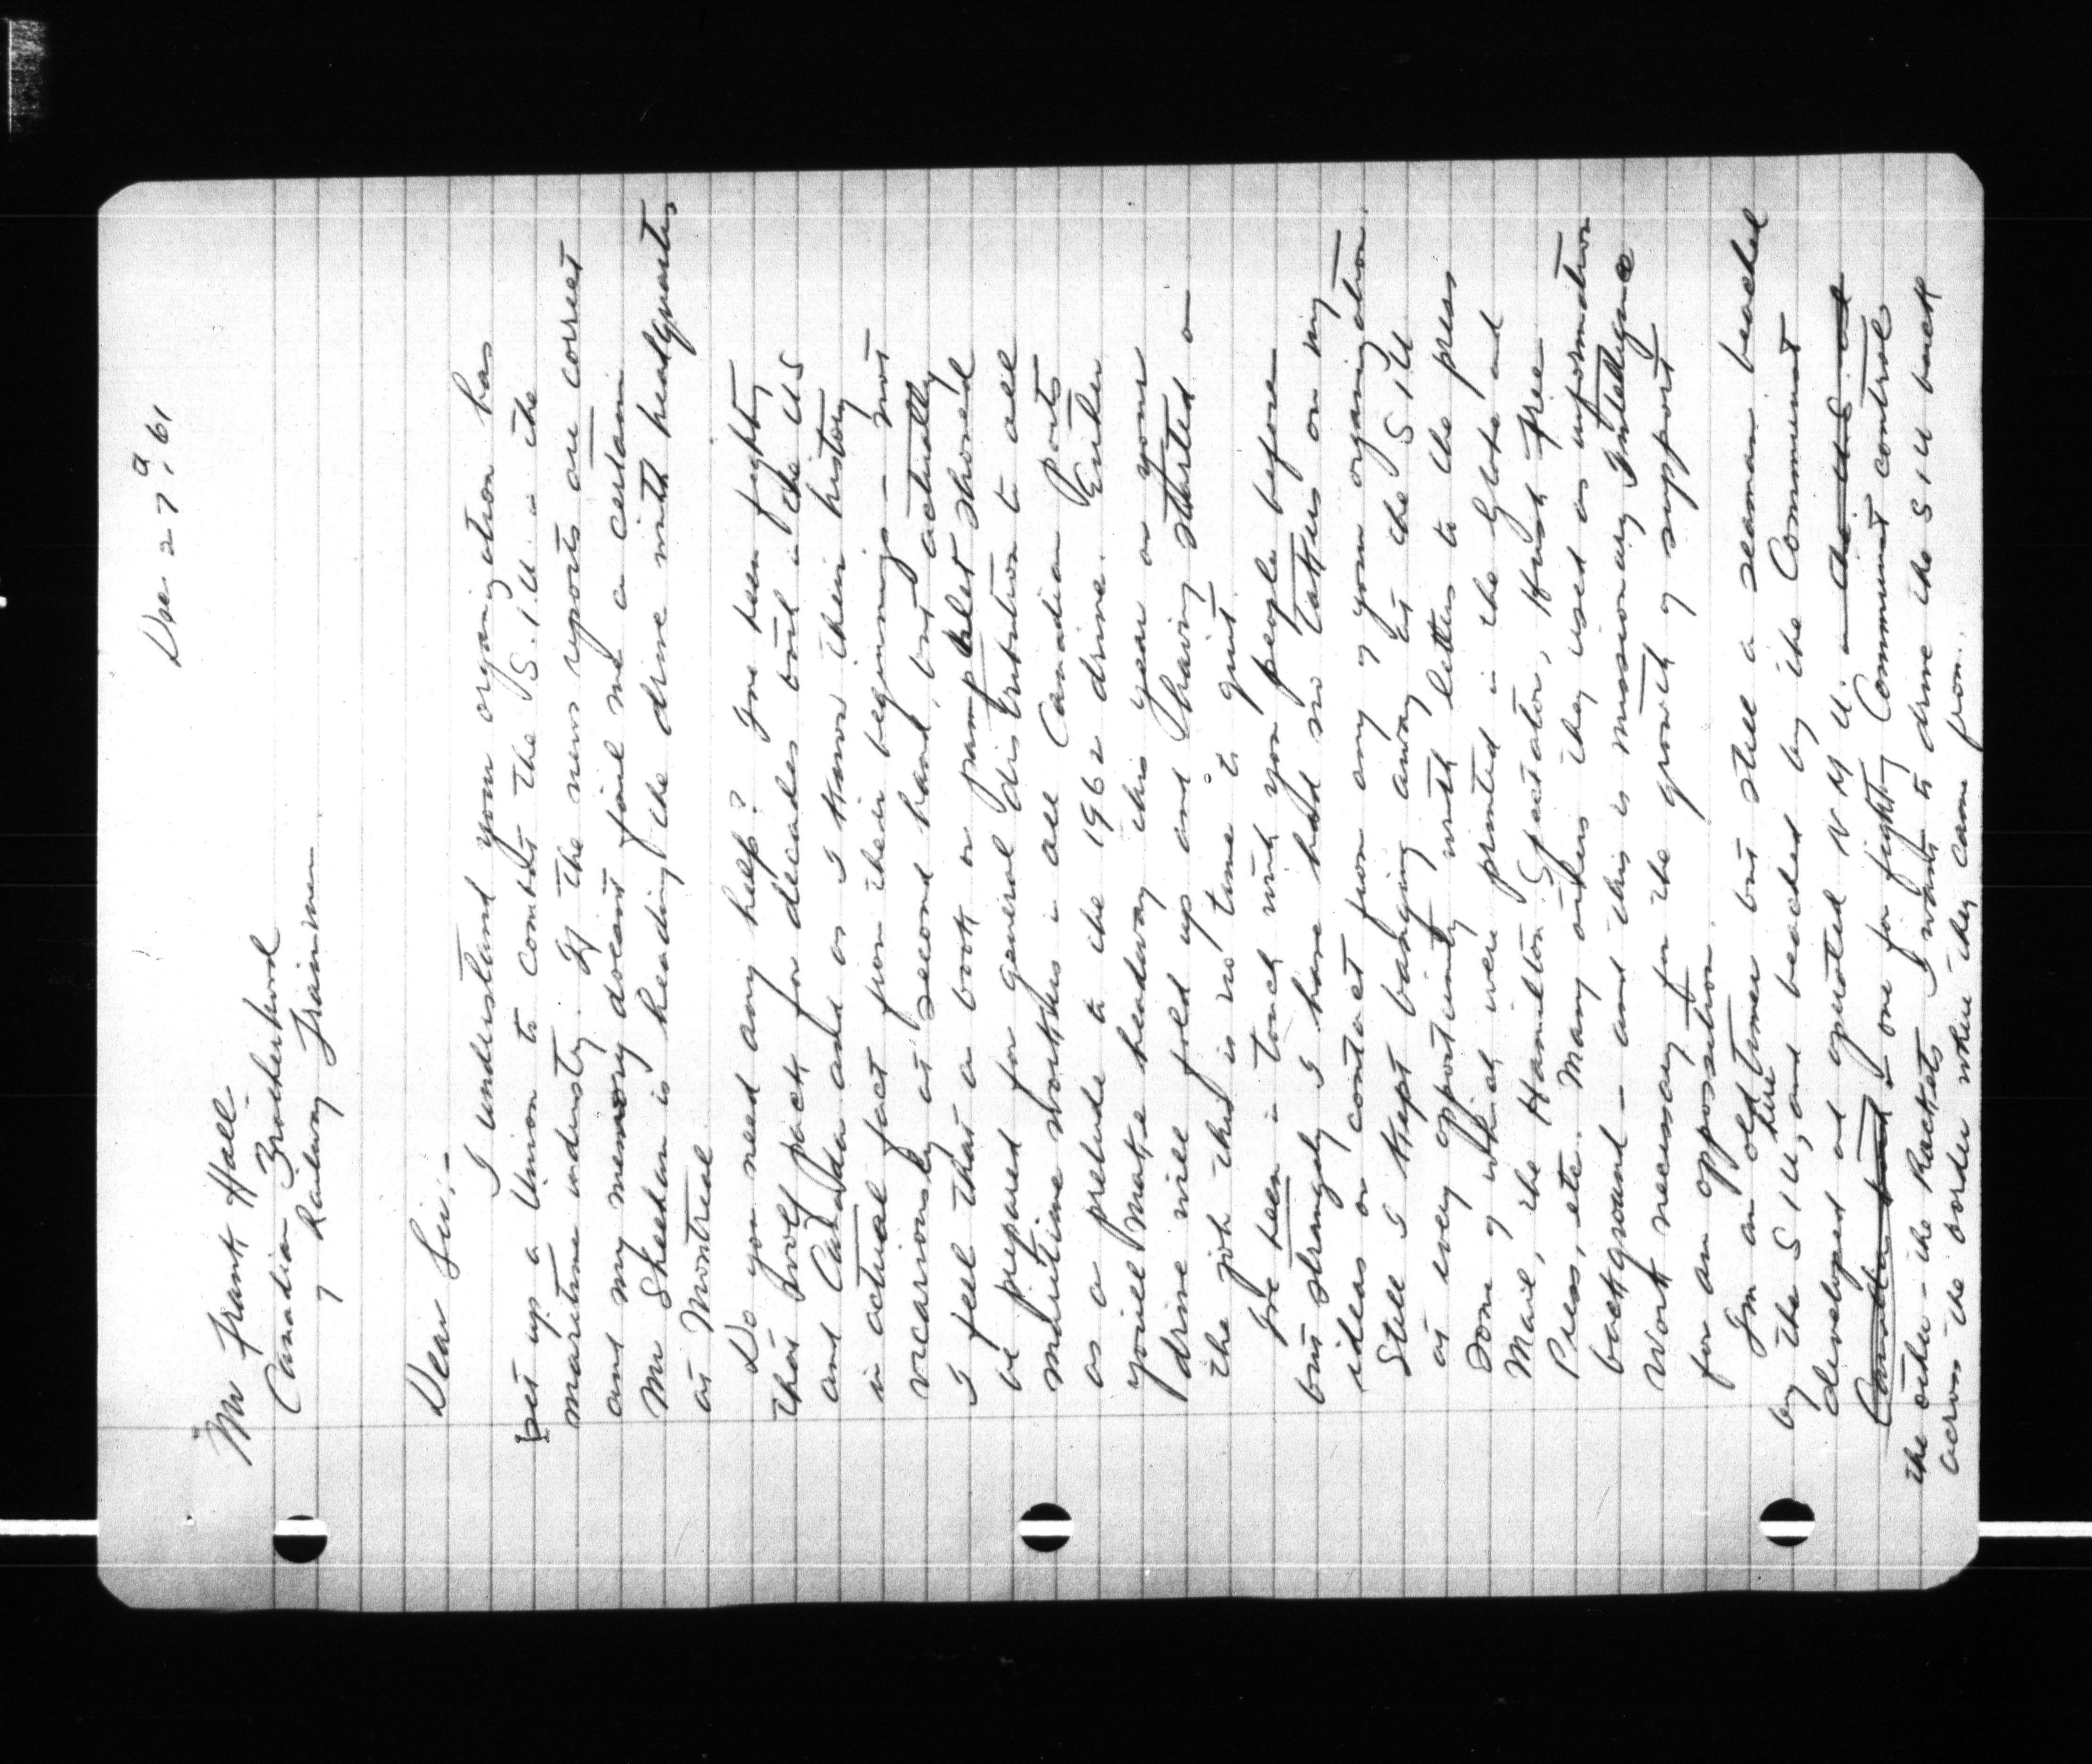 Dec 27, 61
Mr Frank Hall
Canadian Brotherhood
of Railway Trainmen
Dear Sir:-
I understand your organization has
set up a Union to combat the S.I.U. in the
maritime industry. If the news reports are correct
and my memory doesent fail me a certain
Mr Sheehan is heading the drive with headquarters
at Montreal.
Do you need any help? Ive been fighting
that wolf pack for decades both in the US
and Canada and as I know their history
in actual fact from their beginnings - not
vicariously at second hand, but actually
I feel that a book or pamphlet should
be prepared for general distribution to all
maritime workers in all Canadian Ports
as a prelude to the 1962 drive. Either
youill make headway this year or your
drive will fold up and having started on
the job this is no time to quit.
Ive been in touch with you people before
but strangely I have had no takers on my
ideas or contact from any of your organization.
Still I kept banging away at the SIU
at every opportunity with letters to the press
some of which were printed in the Globe and
Mail, the Hamilton Spectator, Hush Free
Press, etc. Many others they used as information
background - and this is missionary Intelligence
work necessary for the growth of support
for an opposition.
Im an old timer but still a seaman beached
by the SIU, here and beached by the Communist
developed and operated NMU. in the US and
Canadian and one for fighting Communist control
the other - the Rackets I want to drive the SIU back
across the border where they came from.